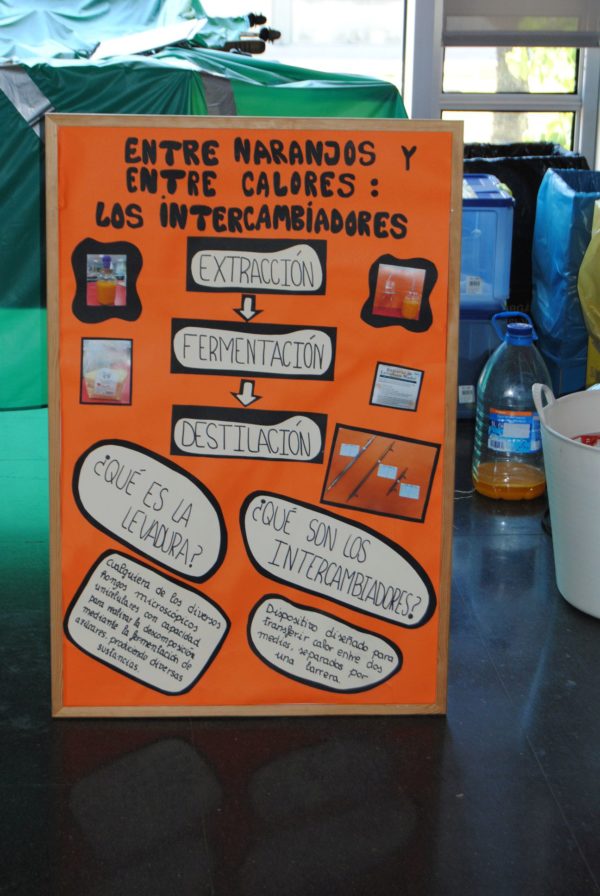 ENTRE NARANJOS Y
ENTRE CALORES :
LOS INTERCAMBIADORES
EXTRACCIÓN
FERMENTACIÓN
DESTILACIÓN
¿QUÉ ES LA
LEVADURA?
Cualquiera de los diversos
hongos microscópicos
unicelulares con capacidad
para realizar la descomposición
mediante la fermentación de
azúcares, produciendo diversas
sustancias
¿QUÉ SON LOS
INTERCAMBIADORES?
Dispositivo diseñado para
transferir calor entre dos
medios, separados por
una barrera.